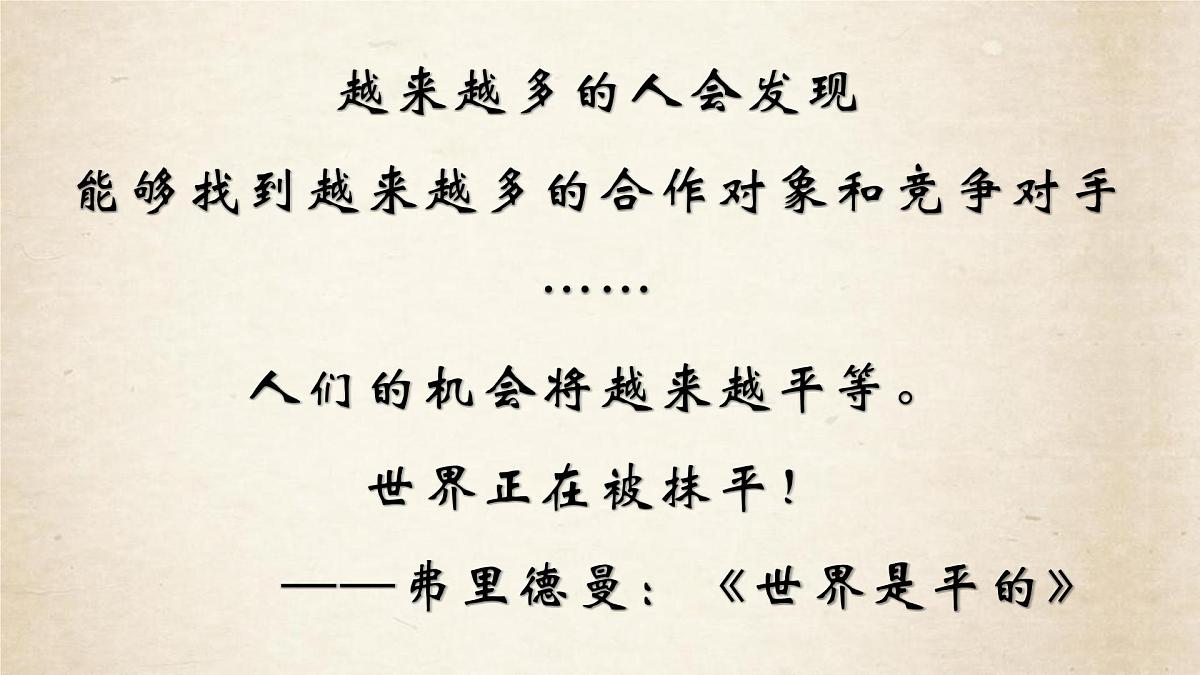 越来越多的人会发现
能够找到越来越多的合作对象和竞争对手
……
人们的机会将越来越平等。
世界正在被抹平！
——弗里德曼：《世界是平的》